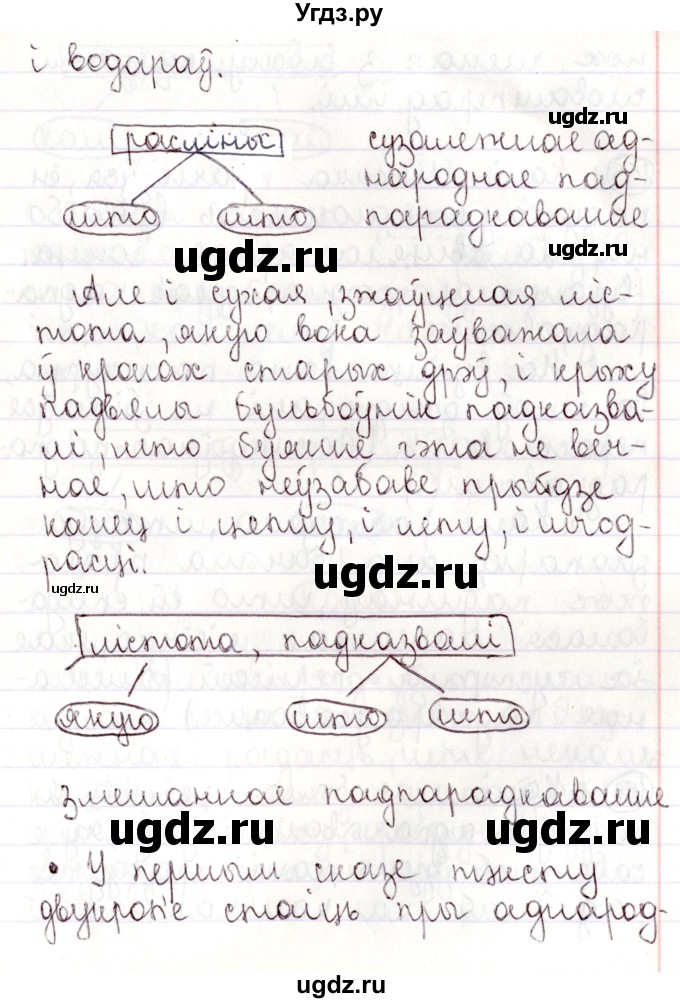 Угдз.ру
і водараў.
расліны
што што
сузалежнае ад-
народнае пад-
парадкаванне
ugdz.ru
ugdz.ru
ugdz.ru
Але і сухая, зжаўцелая ліс-
тота, якую вока заўважала
ў кронах старых дрэў, і крыху
падвялы бульбоўнік падказва-
лі, што буянне гэта не веч-
нае, што неўзабаве прыйдзе
канец і цяплу, і лету, і шчод-
расці.
ugdz.ru
ugdz.ru
лістота, падказвалі
якую што што
Змешанае падпарадкаванне
ugdz.ru
ugdz.ru
• У першым сказе тэксту
двукроп'е стаіць пры аднарод-
ugdz.ru